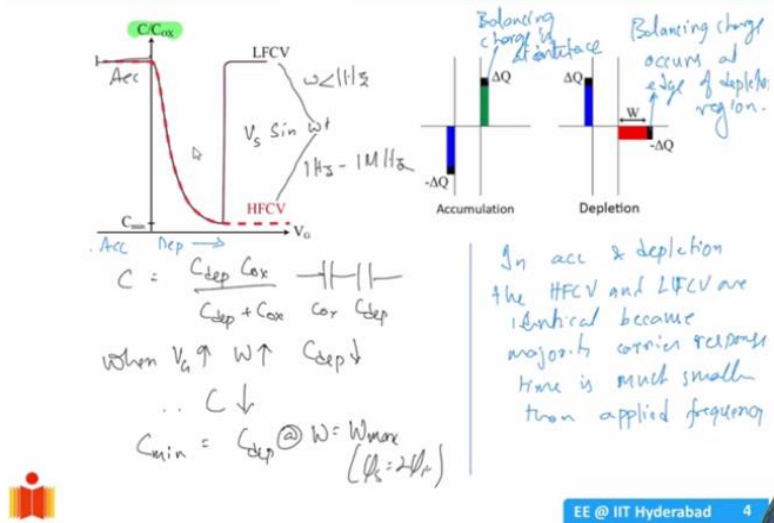 C/Cox
Acc
LFCV
ω<1Hz
Vs Sin ωt
1Hz - 1MHz
HFCV
Cmin
VG
Acc Dep →
C = Cdep Cox
Cdep + Cox
Cox Cdep
when VG ↑ W↑ Cdep↓
∴ C ↓
Cmin = Cdep @ W = Wmax
(φs = 2φF)
Balancing
charge is
at interface
ΔQ
-ΔQ
Accumulation
Balancing charge
occurs at
edge of depletion
region.
ΔQ
W
-ΔQ
Depletion
In acc & depletion
the HFCV and LFCV are
identical because
majority carrier response
time is much smaller
than applied frequency
EE @ IIT Hyderabad 4